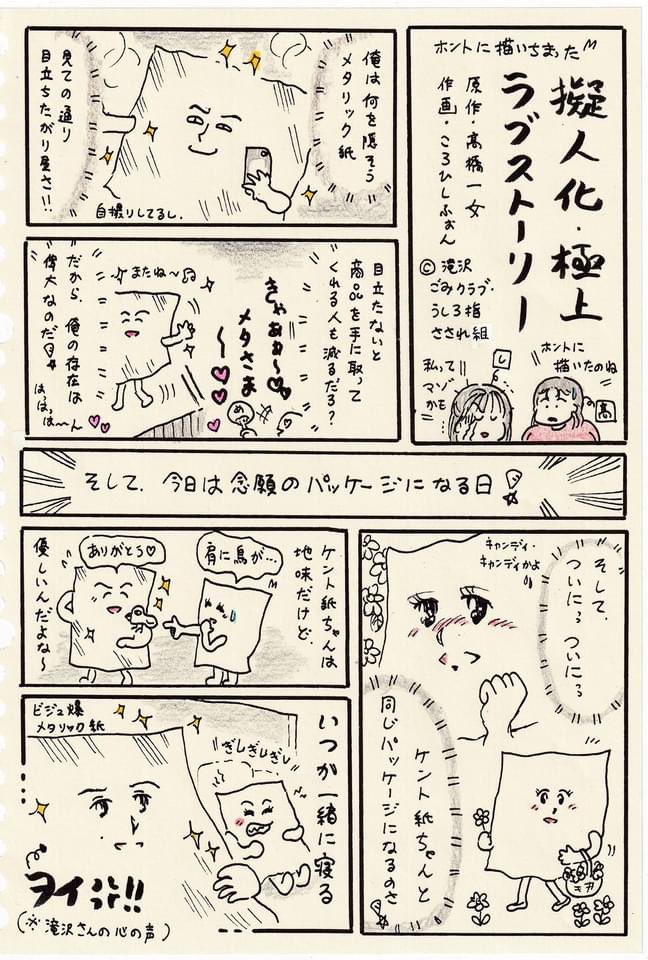 ホントに描いちまった
擬人化・極上
ラブストーリー
原作・髙橋一女
作画・ころひしふぉん
© 滝沢
ごみクラブ・
うしろ指
さされ組
ホントに
描いたのね
私って
マゾ
かも
し
高
俺は何を隠そう
メタリック紙
見ての通り
目立ちたがり屋さ!!
自撮りしてるし。
目立たないと
商品を手に取って
くれる人も減るだろ?
きゃああ〜♡
メタさま
〜♡
め
またね〜♪
だから、俺の存在は
偉大なのだ!
はっはっは〜ん
そして、今日は念願のパッケージになる日!
そして、
ついに?ついに?
キャンディ・
キャンディかよ!!
ケント紙ちゃんと
同じパッケージになるのさ
ケント紙ちゃんは
地味だけど、
肩に鳥が…
ありがとう♡
優しいんだよな〜
いつか一緒に寝る
ぎしぎしぎし
ビジュ爆
メタリック紙
ヲイ!!
(※滝沢さんの心の声)